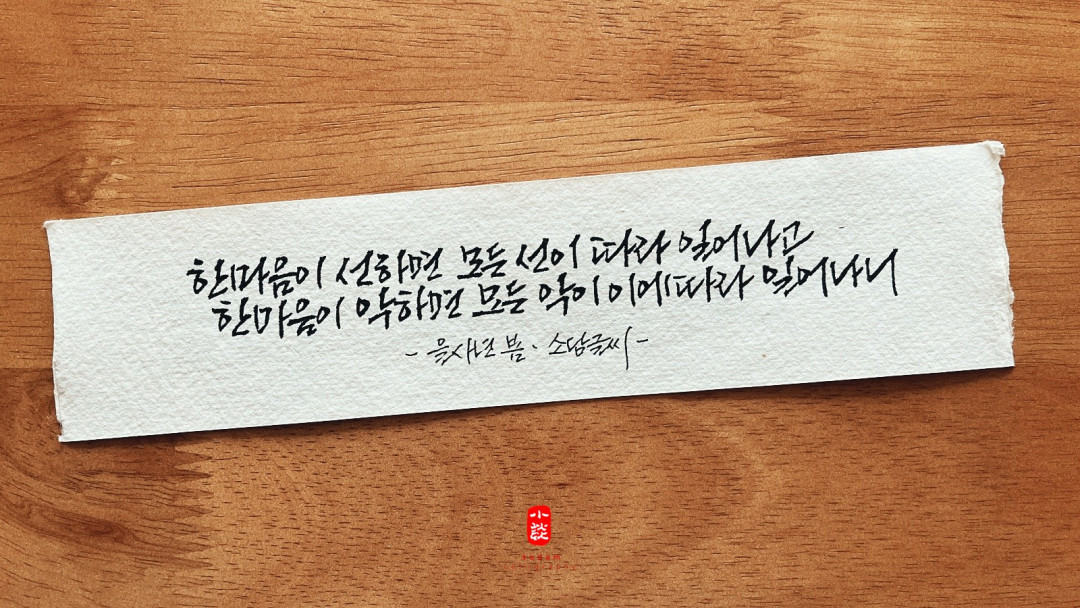 한마음이 선하면 모든 선이 따라 일어나고
한마음이 악하면 모든 악이 이에 따라 일어나니
- 을사년 봄 · 소담글씨 -
小